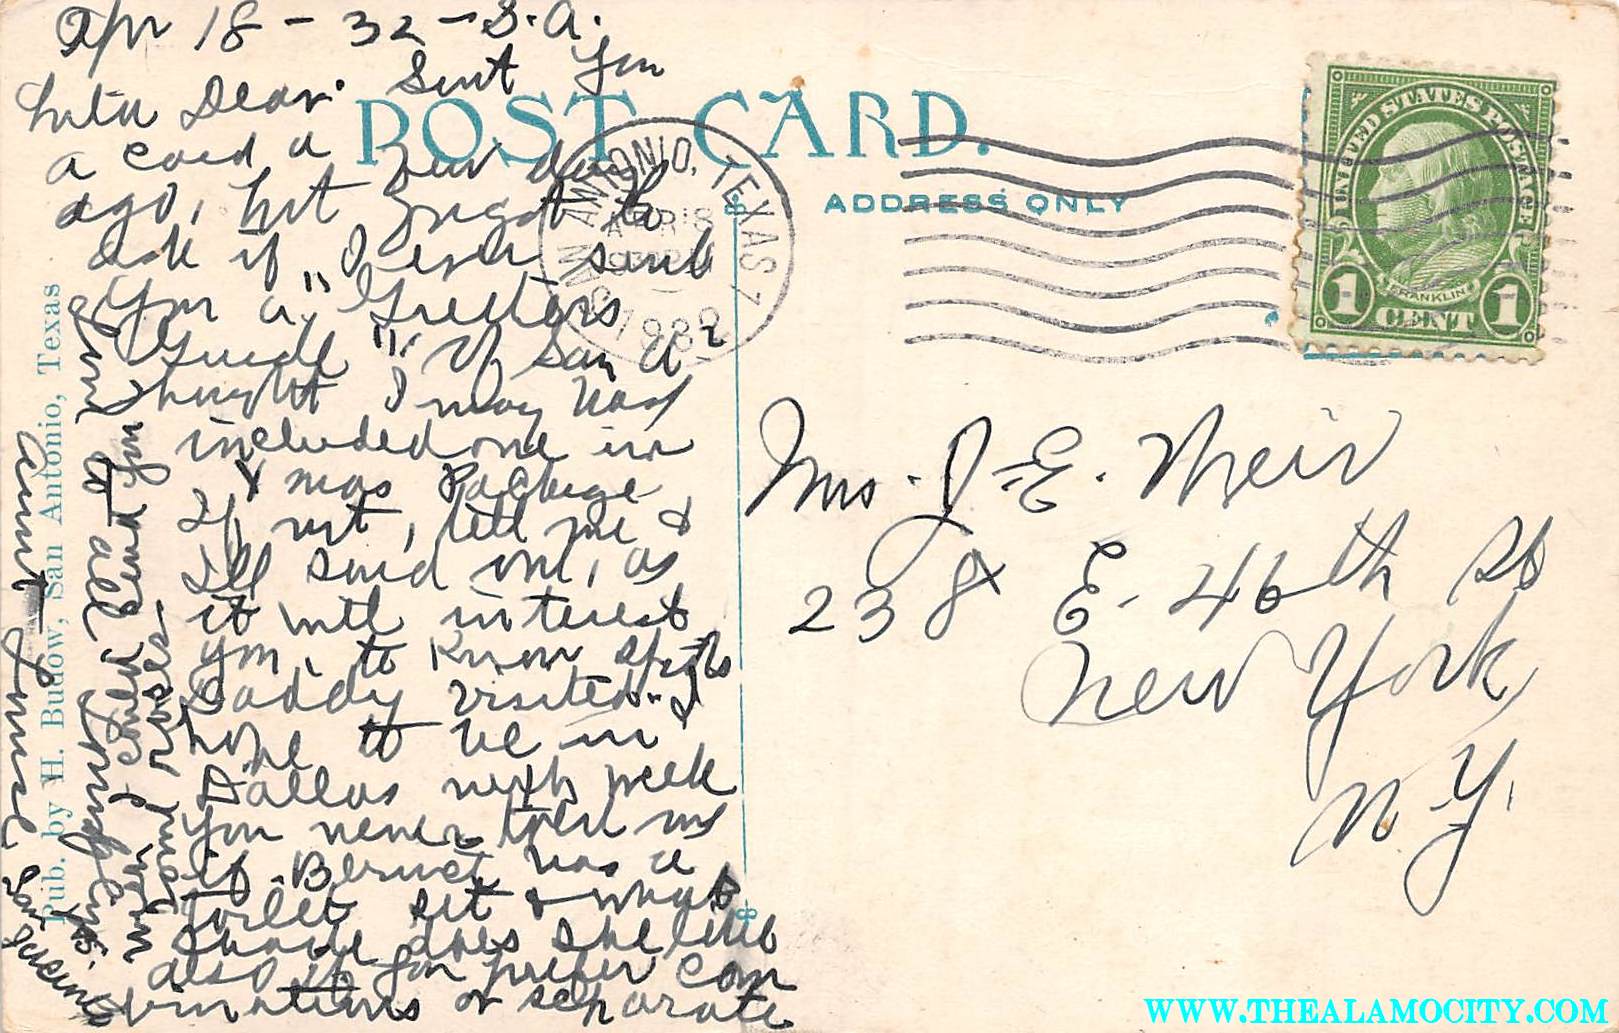 Apr 18 - 32 - S.A.
Dear. Sent you
a card a few days
ago, but forgot to
ask if I ever sent
you a "Greeters
Guide" of San A
thought I may have
included one in
Xmas Package
If not, tell me &
I'll send one, as
it will interest
you, to know spots
Daddy visited - I
hope to be in
Dallas next week
You never told me
if Bernice has a
toilet set & what
shade does she like
also if you prefer com
binations or separate
Love to all
Aunt
POST CARD.
ADDRESS ONLY
SAN ANTONIO, TEXAS
APR 18
1932
UNITED STATES POSTAGE
FRANKLIN
1 CENT 1
Mrs. J. E. Weir
238 E. 46th St
New York
N.Y.
Pub. by H. Budow, San Antonio, Texas
WWW.THEALAMOCITY.COM